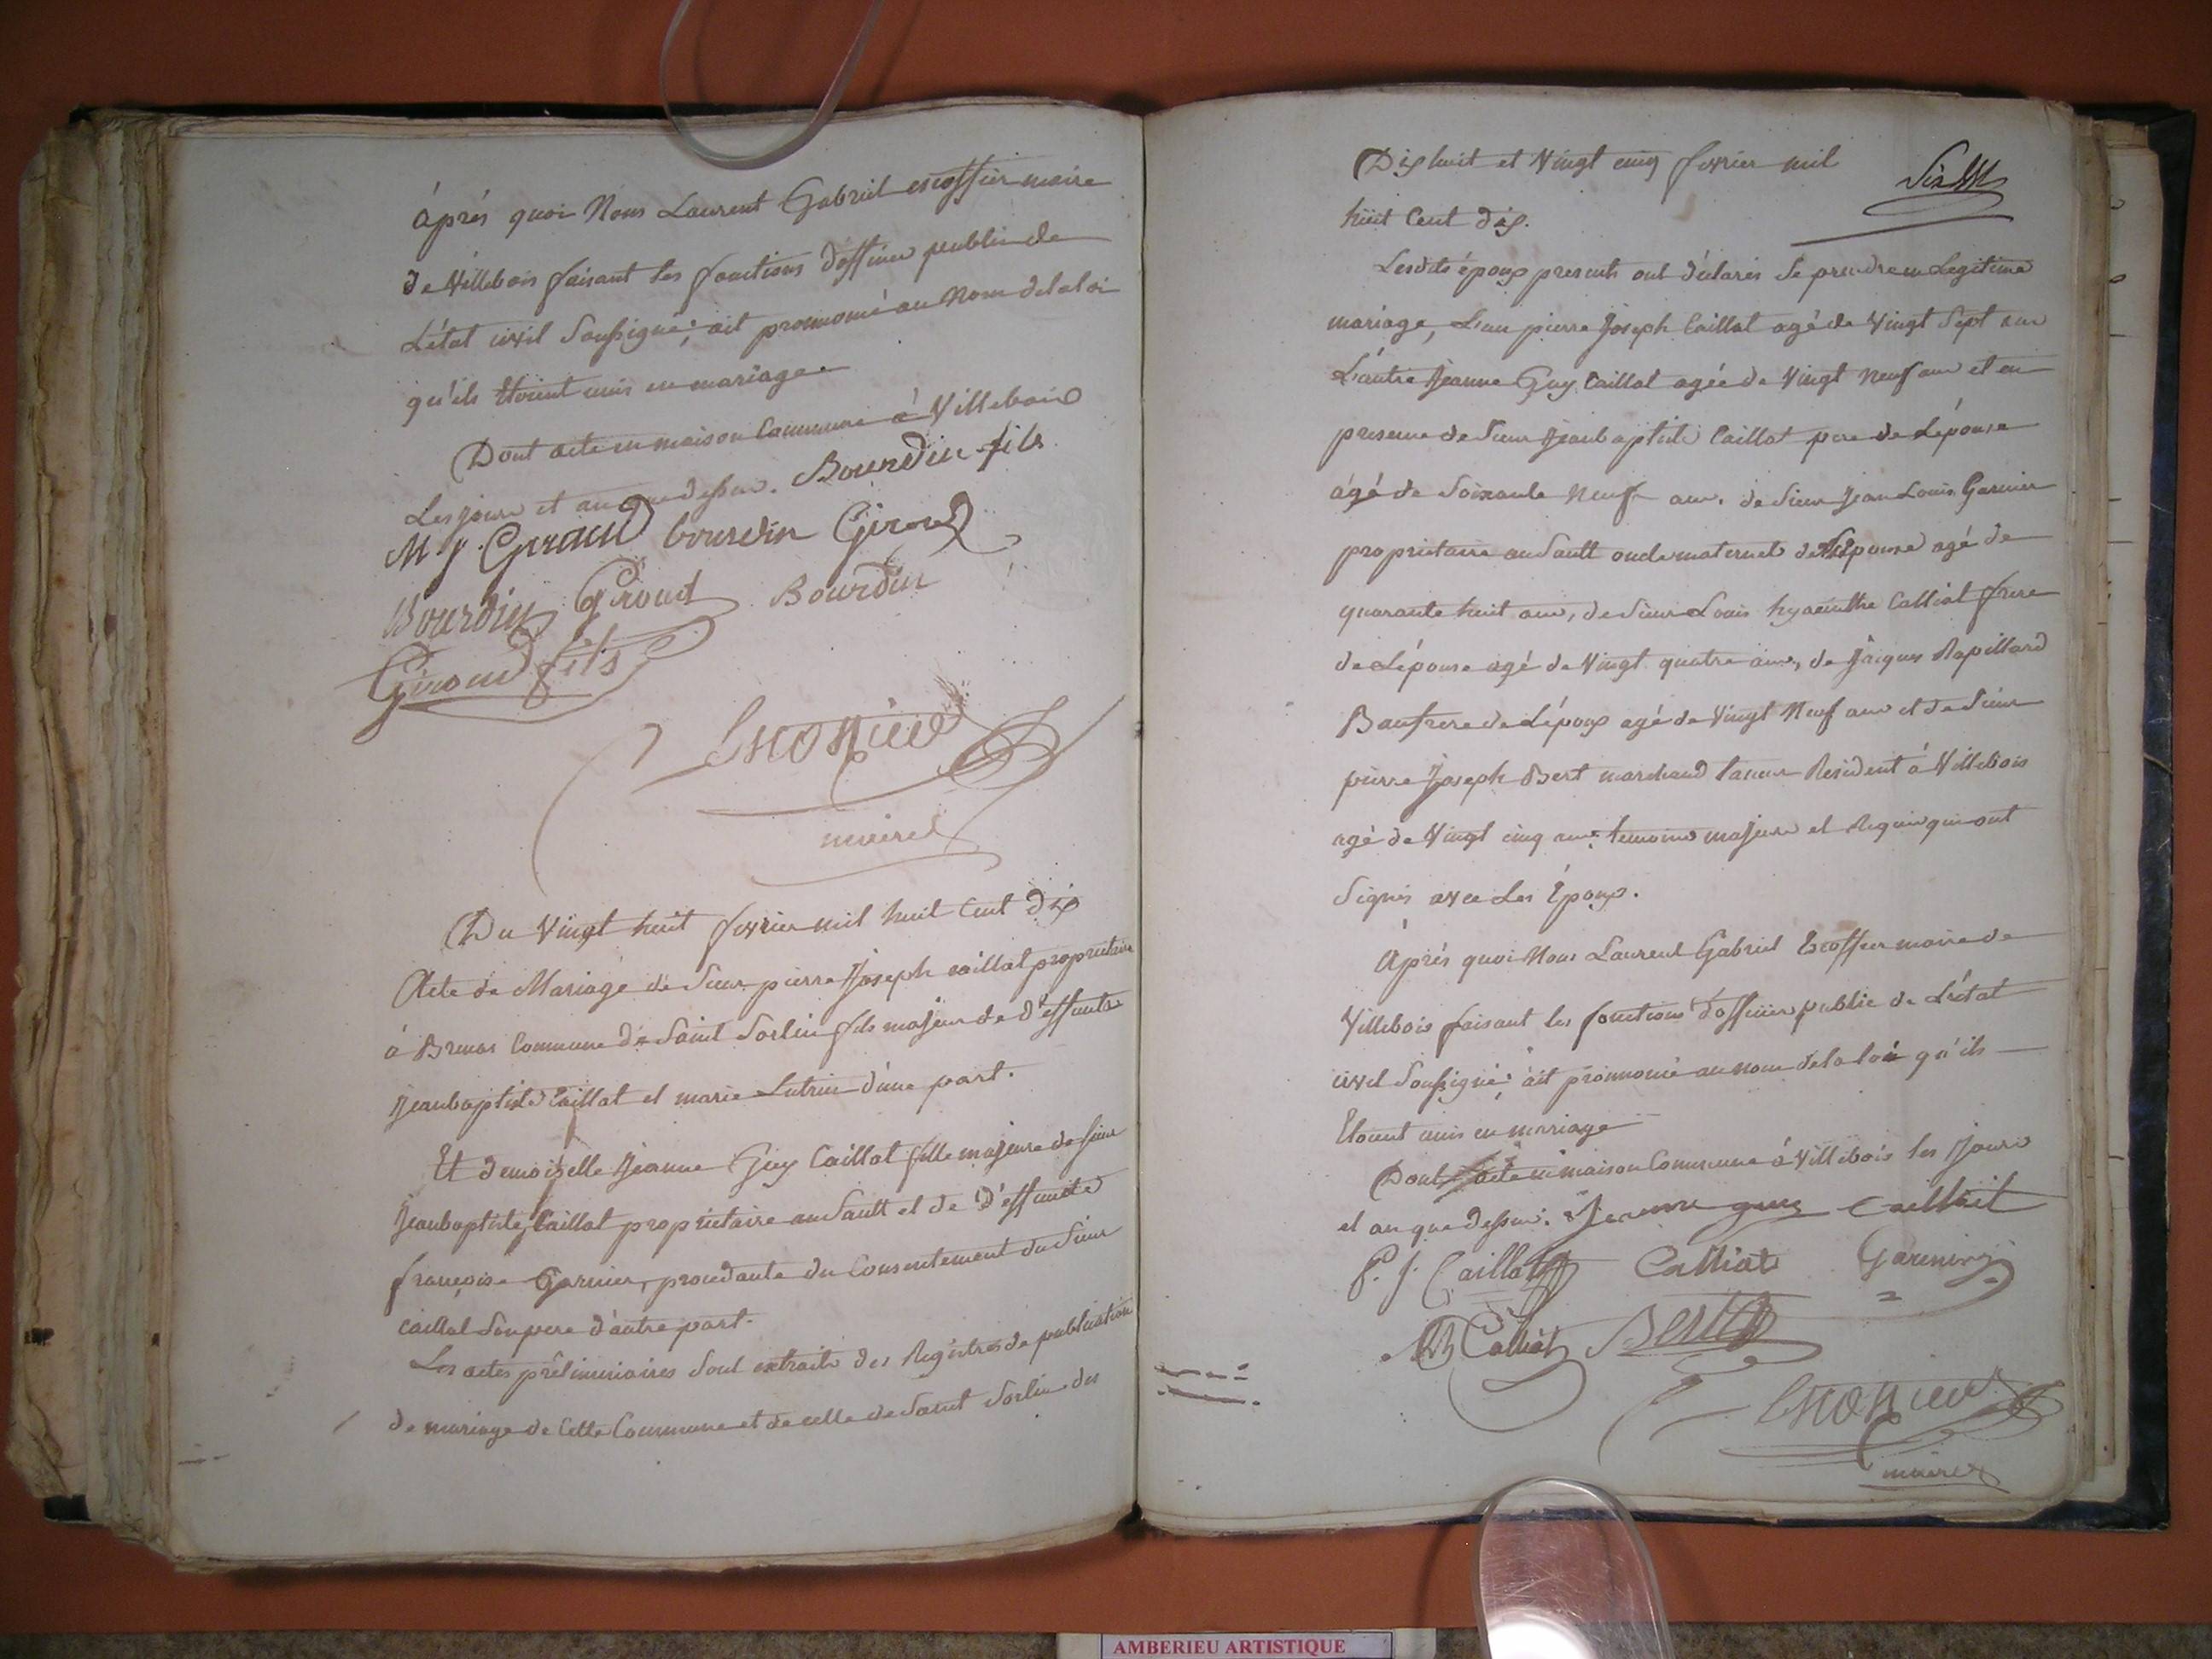 après quoi Nous Laurent Gabriel escoffier maire
de Villebois faisant les fonctions d'officier public de
L'état civil Soussigné; ait prononcé au Nom de la loi
qu'ils Etoient unis en mariage
Dont acte en maison Commune à Villebois
Les jours et an que dessus. Bourdin fils
M J. Giraud bourdin Giroud
Bourdin Giroud Bourdin
Giroud fils
Escoffier
maire
Du Vingt huit fevrier mil huit Cent dix
Acte de Mariage de Sieur pierre Joseph caillat proprietaire
à Commune de Saint Sorlin fils majeur de deffunts
Jeanbaptiste Caillat et marie Lutrin d'une part.
Et demoiselle Jeanne Guy Caillat fille majeure de sieur
Jeanbaptiste Caillat proprietaire au Sault et de deffuncte
françoise Garnier, procedante du Consentement du Sieur
caillat Son pere d'autre part.
Les actes préliminiaires sont extraits des Régistres de publication
de mariage de Cette Commune et de celle de Saint Sorlin des
Dix huit et Vingt cinq fevrier mil
huit Cent dix.
Lesdits époux presents ont déclarés Se prendre en Legitime
mariage, L'un pierre Joseph Caillat agé de Vingt Sept ans
L'autre Jeanne Guy Caillat agée de Vingt Neuf ans et en
presence de Sieur Jeanbaptiste Caillat pere de L'épouse
agé de Soixante Neuf ans. de Sieur Jean Louis Garnier
proprietaire au Sault oncle maternel de L'épouse agé de
quarante huit ans, de Sieur Louis hyacinthe Calliat frere
de L'épouse agé de Vingt quatre ans, de Jacques Rapillard
Baufrere de L'époux agé de Vingt Neuf ans et de Sieur
pierre Joseph Bert marchand taneur Resident à Villebois
agé de Vingt cinq ans; temoins majeurs et Requis qui ont
Signés avec Les Époux.
Après quoi Nous Laurent Gabriel Escoffier maire de
Villebois faisant les fonctions d'officier public de L'état
civil Soussigné; ait prononcé au nom de la loi qu'ils
Etoient unis en mariage
Dont acte en maison Commune à Villebois les Jours
et an que dessus. Jeanne guy Caillat
P. J. Caillat Calliat Garnier
Calliat Bert
Escoffier
maire